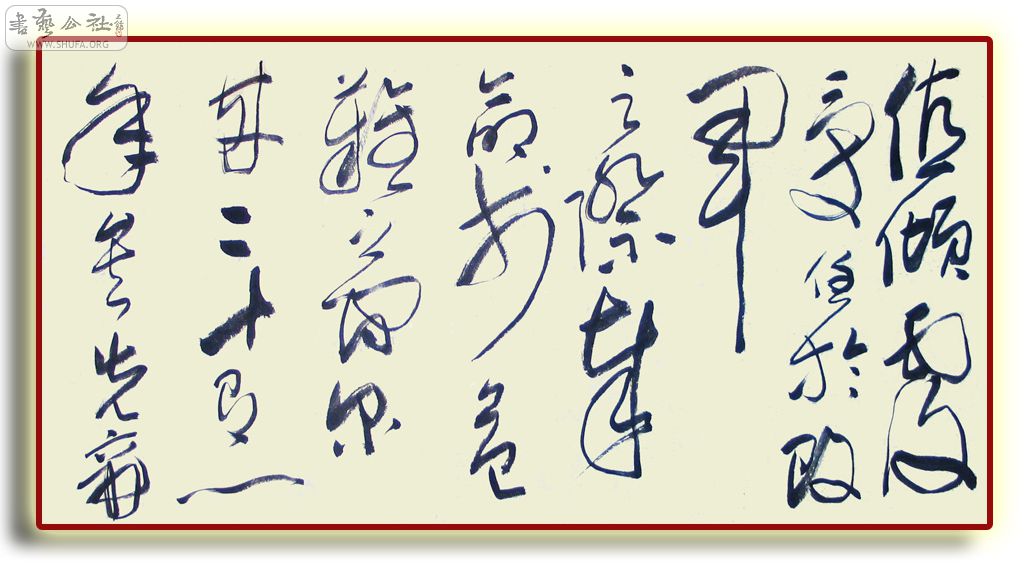 值傾覆
受任於敗
軍
之際奉
命於危
難之間尔
來二十有一
年矣先帝
書藝公社
WWW.SHUFA.ORG